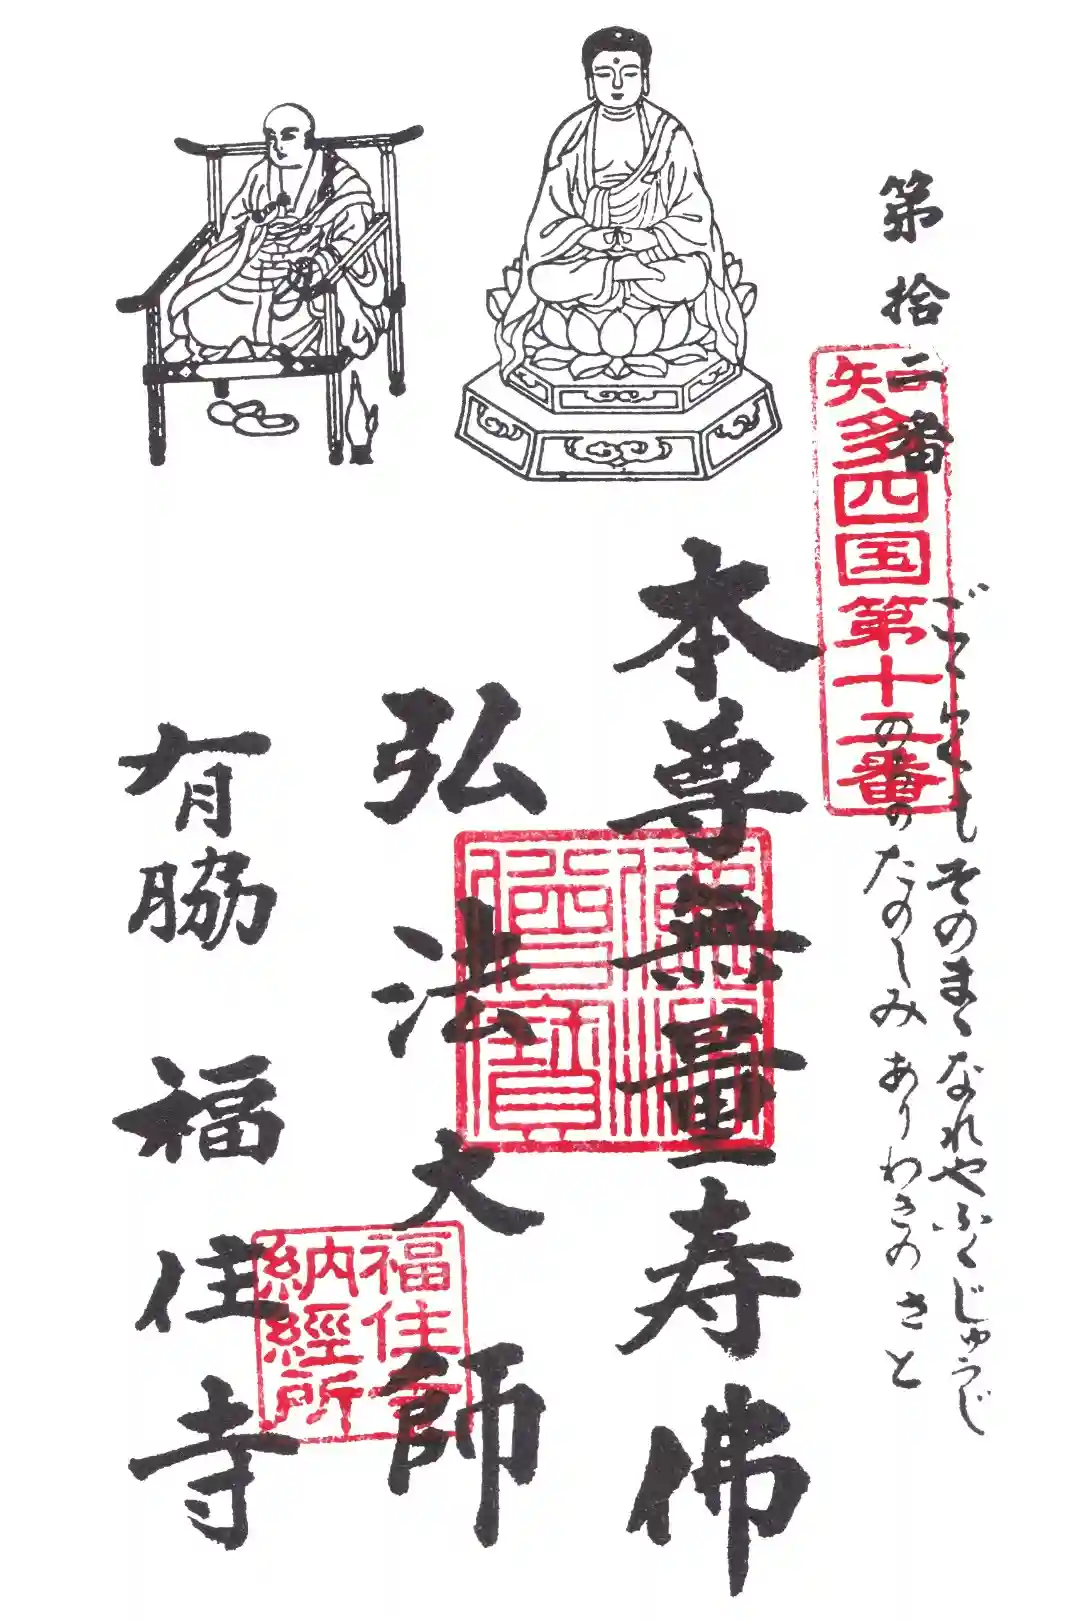 第拾二番
知多四国第十二番
そのまゝなれやふくじゅうじ
たのしみありわきのさと
本尊無量寿佛
佛法
僧寶
弘法大師
福住寺
納經所
有脇 福住寺